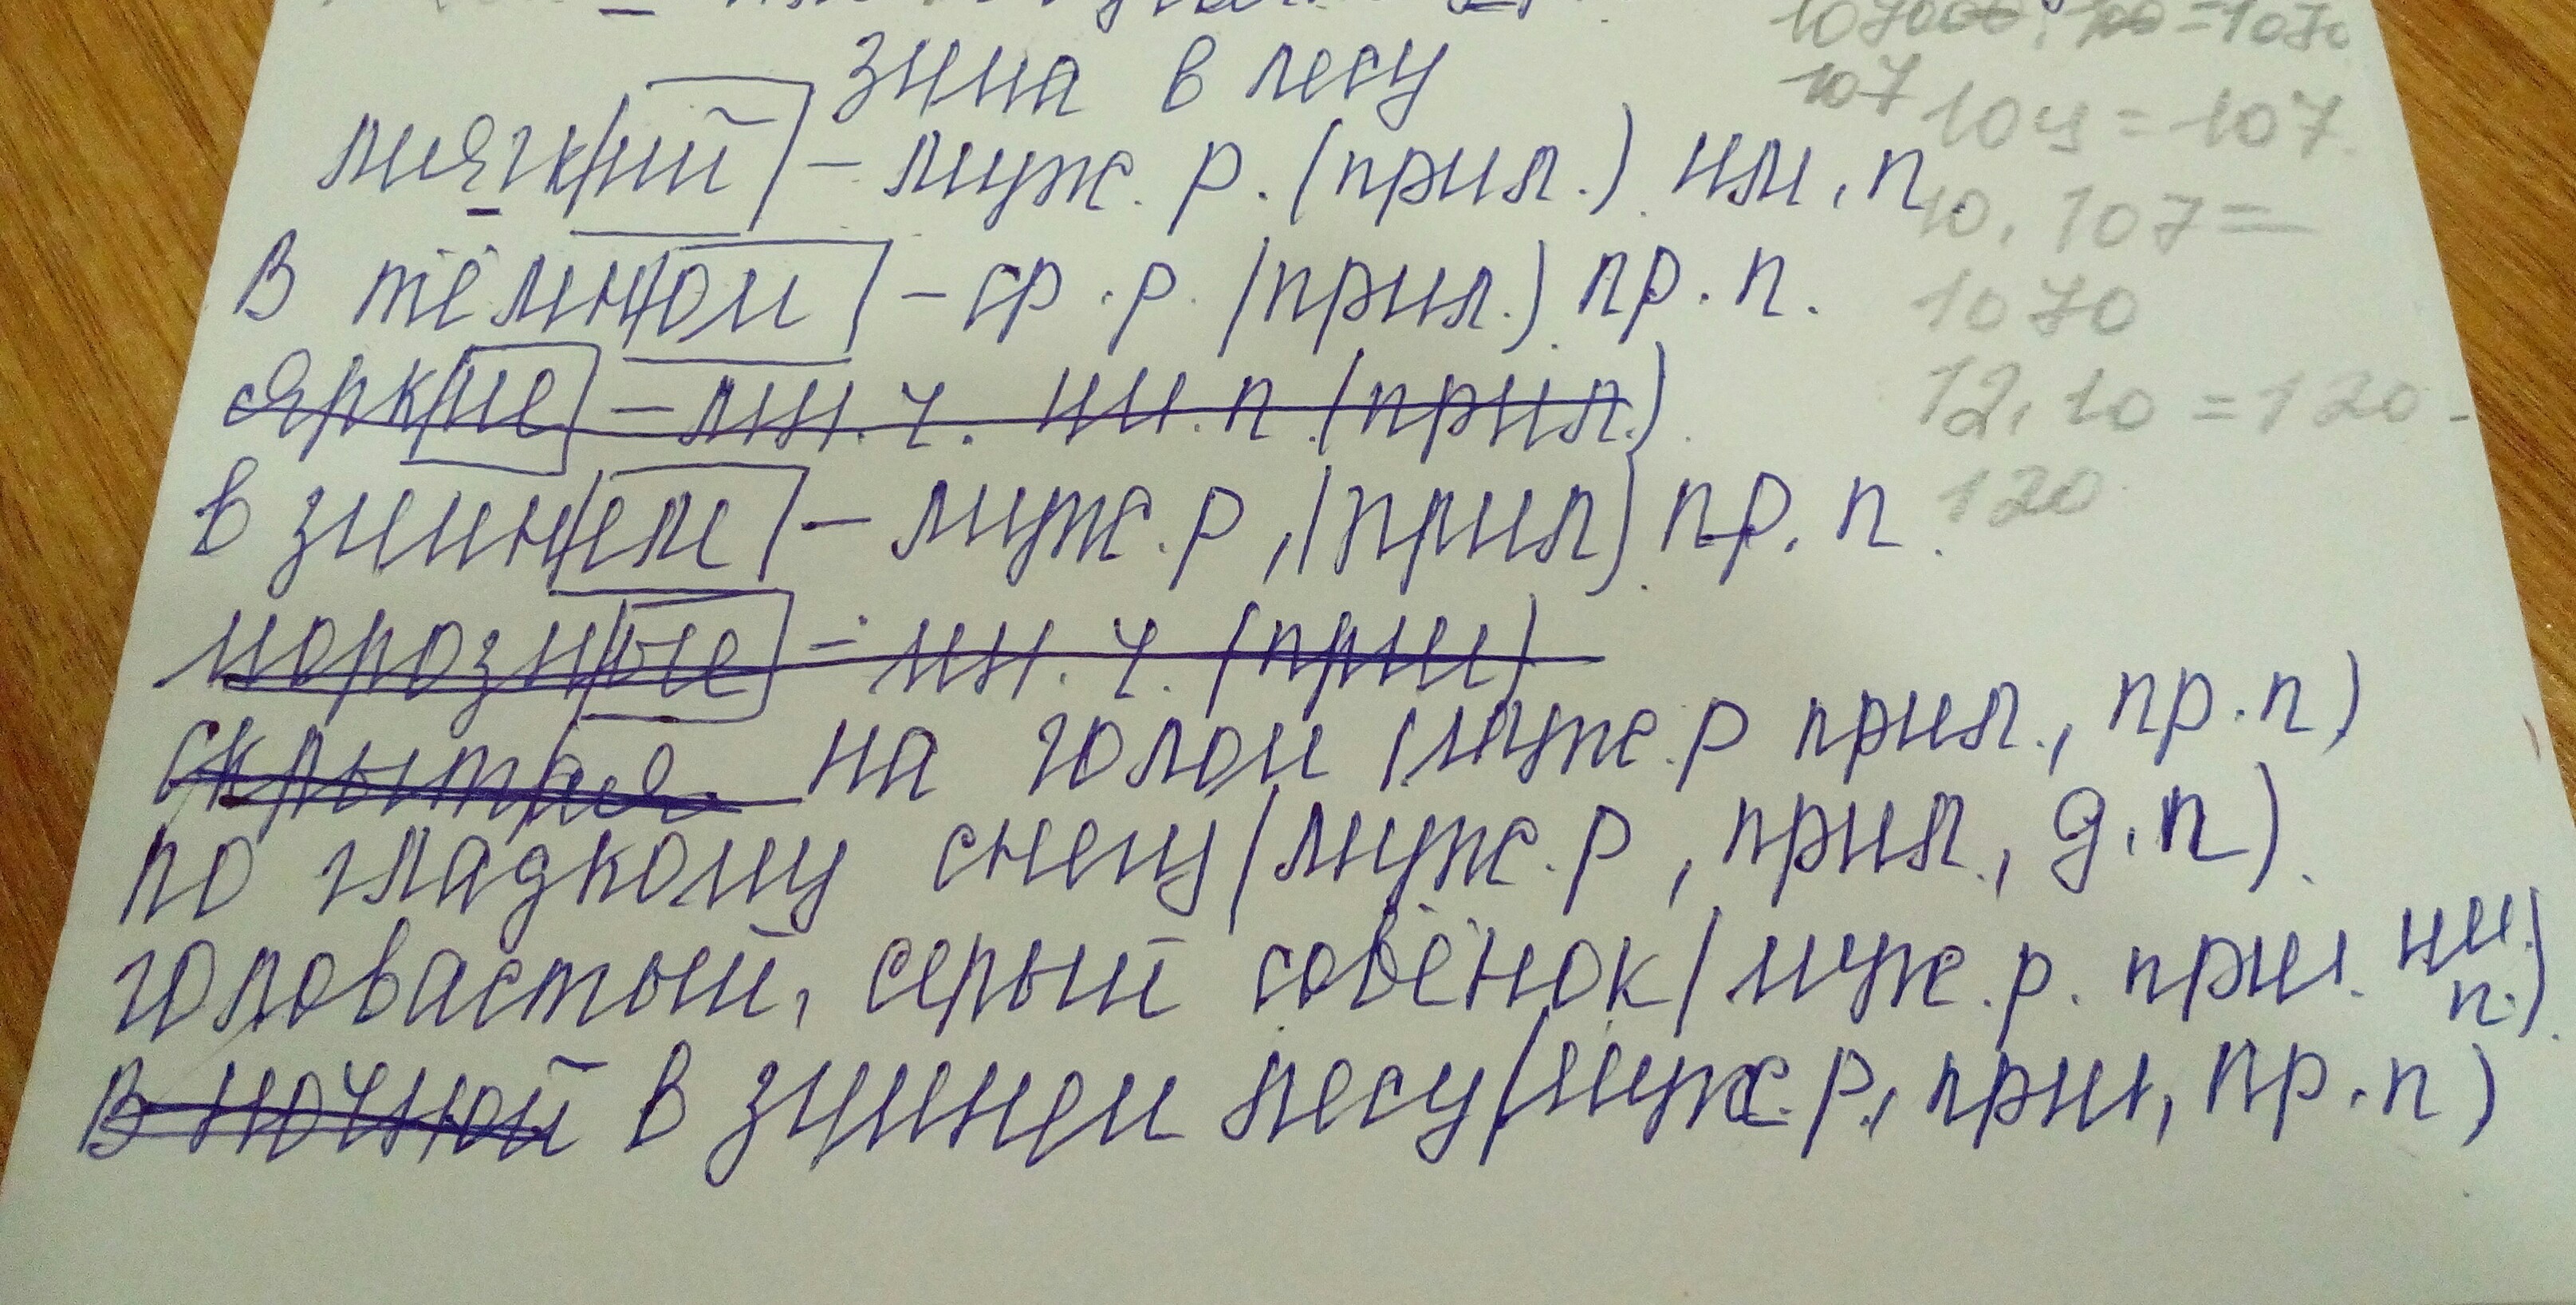 зима в лесу
107000 : 100 = 1070
107
мягкий – муж. р. (прил.) им. п.
104 = 107
В тёмном – ср. р. (прил.) пр. п.
10. 107 =
1070
яркие – мн. ч. им. п. (прил.)
12. 10 = 120
в зимнем – муж. р, (прил) пр. п.
120
морозные – мн. ч. (прил)
скрытая на голом (муж. р прил., пр. п)
по гладкому снегу (муж. р, прил., д. п).
головастый, серый совёнок (муж. р. прил. им. п.)
в ночной в зимнем лесу (муж. р, прил, пр. п)